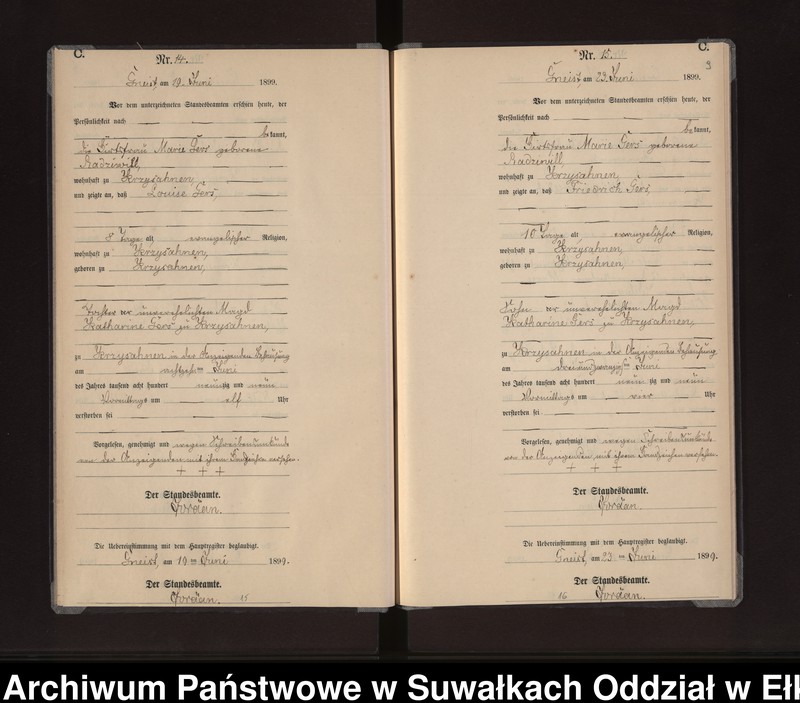 C.
Nr. 14.
Gneist, am 19. Juni 1899.
Vor dem unterzeichneten Standesbeamten erschien heute, der
Persönlichkeit nach
bekannt,
die Marie Gers geborene
Radziwill,
wohnhaft zu Krzysahnen,
und zeigte an, daß Louise Gers,
8 Tage alt evangelischer Religion,
wohnhaft zu Krzysahnen,
geboren zu Krzysahnen,
Tochter der unverehelichten Magd
Katharine Gers zu Krzysahnen,
zu Krzysahnen in der Anzeigenden Behausung
am achtzehnten Juni
des Jahres tausend acht hundert neunzig und neun
Vormittags um elf Uhr
verstorben sei
Vorgelesen, genehmigt und wegen Schreibensunkunde
von der Anzeigenden mit ihrem Handzeichen versehen.
+ + +
Der Standesbeamte.
Jordan.
Die Uebereinstimmung mit dem Hauptregister beglaubigt.
Gneist, am 19ten Juni 1899.
Der Standesbeamte.
Jordan.
15
C.
9
Nr. 15.
Gneist, am 23. Juni 1899.
Vor dem unterzeichneten Standesbeamten erschien heute, der
Persönlichkeit nach
bekannt,
die Marie Gers geborene
Radziwill,
wohnhaft zu Krzysahnen,
und zeigte an, daß Friedrich Gers,
10 Tage alt evangelischer Religion,
wohnhaft zu Krzysahnen,
geboren zu Krzysahnen,
Sohn der unverehelichten Magd
Katharine Gers zu Krzysahnen,
zu Krzysahnen in der Anzeigenden Behausung
am dreiundzwanzigsten Juni
des Jahres tausend acht hundert neunzig und neun
Vormittags um vier Uhr
verstorben sei
Vorgelesen, genehmigt und wegen Schreibensunkunde
von der Anzeigenden mit ihrem Handzeichen versehen.
+ + +
Der Standesbeamte.
Jordan.
Die Uebereinstimmung mit dem Hauptregister beglaubigt.
Gneist, am 23ten Juni 1899.
Der Standesbeamte.
16 Jordan.
Archiwum Państwowe w Suwałkach Oddział w Ełk